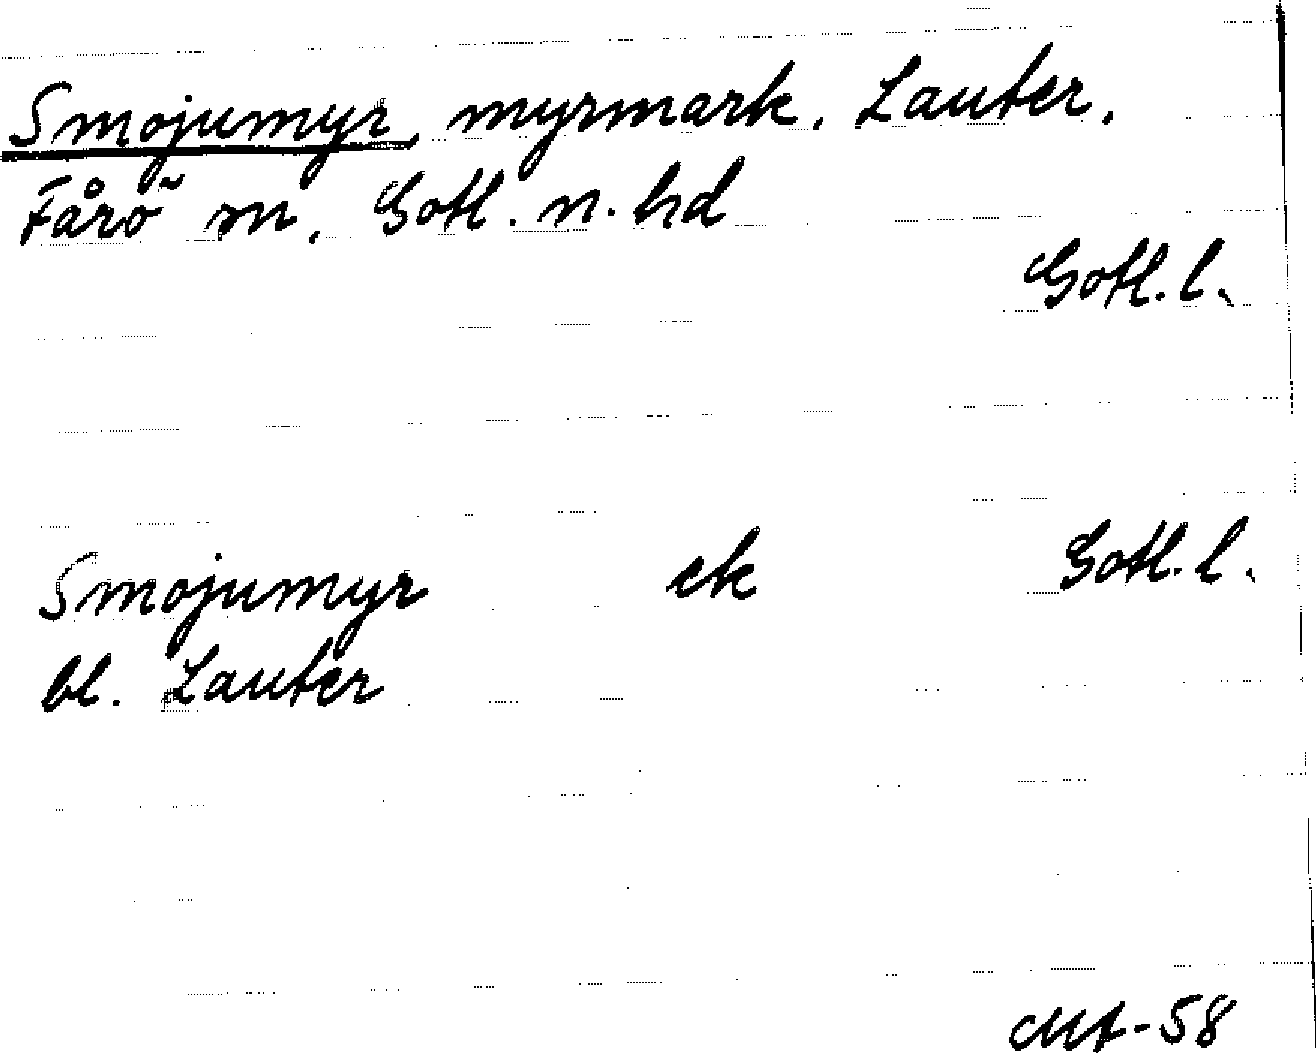 Smojumyr, myrmark, Lauter,
Fårö sn, Gotl. n. hd
Gotl. l.
Smojumyr ek Gotl. l.
bl. Lauter
-58